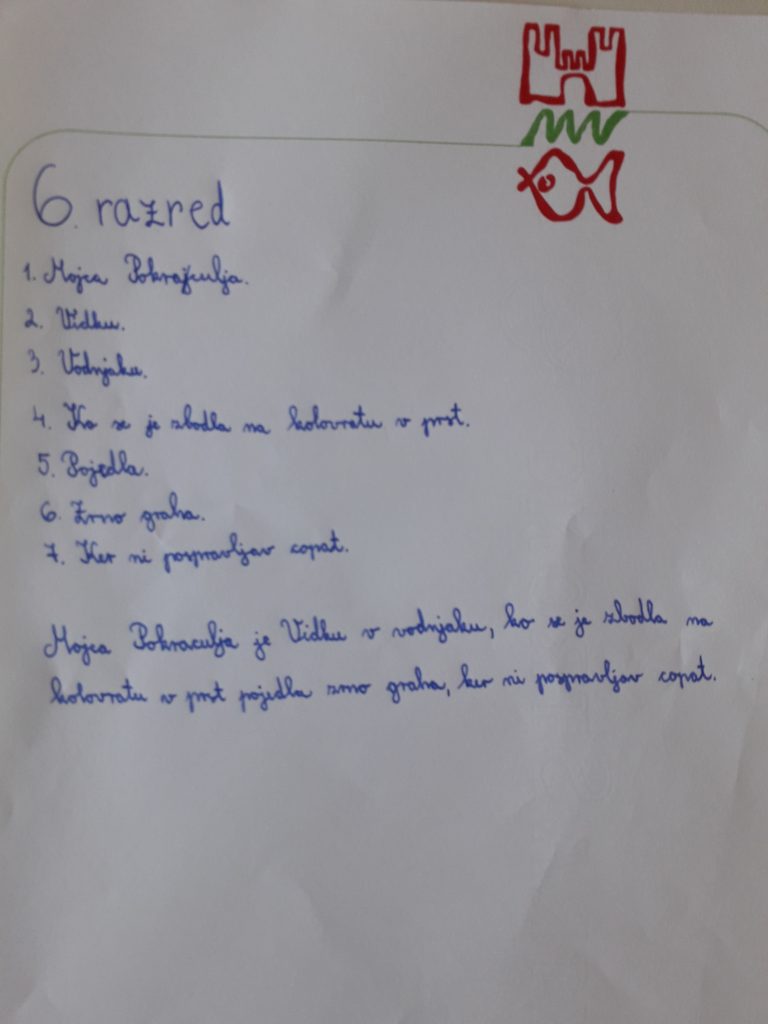 6. razred
1. Mojca Pokrajculja.
2. Vidku.
3. Vodnjaku.
4. Ko se je zbodla na kolovratu v prst.
5. Pojedla.
6. Zrno graha.
7. Ker ni pospravljav copat.
Mojca Pokraculja je Vidku v vodnjaku, ko se je zbodla na
kolovratu v prst pojedla zrno graha, ker ni pospravljav copat.